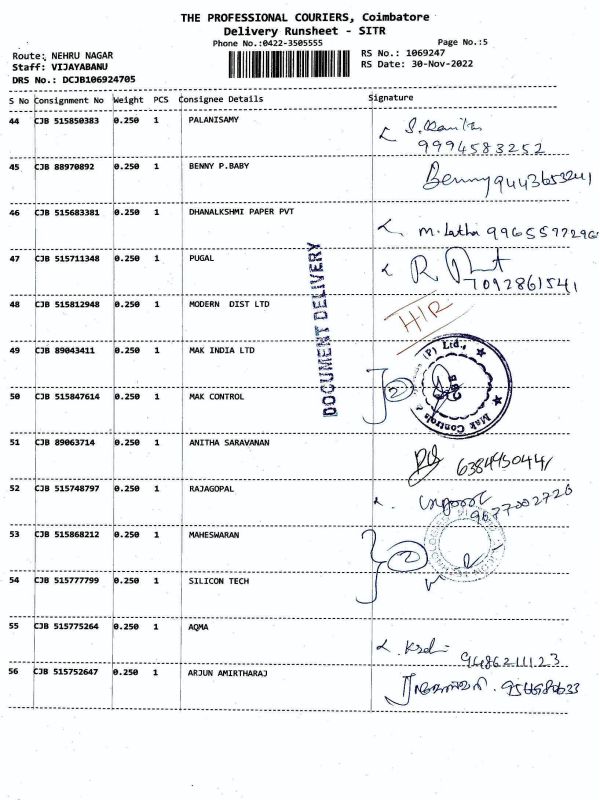 THE PROFESSIONAL COURIERS, Coimbatore
Delivery Runsheet - SITR
Phone No.:0422-3505555
Page No.:5
Route: NEHRU NAGAR
RS No.: 1069247
Staff: VIJAYABANU
RS Date: 30-Nov-2022
DRS No.: DCJB106924705
S No Consignment No Weight PCS Consignee Details Signature
44 CJB 515850383 0.250 1 PALANISAMY
9994583252
45 CJB 88970892 0.250 1 BENNY P.BABY
Benny 9443653241
46 CJB 515683381 0.250 1 DHANALKSHMI PAPER PVT
M. Latha 9965577296
47 CJB 515711348 0.250 1 PUGAL
7092861541
48 CJB 515812948 0.250 1 MODERN DIST LTD
H/R
DOCUMENT DELIVERY
49 CJB 89043411 0.250 1 MAK INDIA LTD
(P) Ltd.,
50 CJB 515847614 0.250 1 MAK CONTROL
2
Mak Controls
51 CJB 89063714 0.250 1 ANITHA SARAVANAN
6384450441
52 CJB 515748797 0.250 1 RAJAGOPAL
9677002726
53 CJB 515868212 0.250 1 MAHESWARAN
2
54 CJB 515777799 0.250 1 SILICON TECH
55 CJB 515775264 0.250 1 AQMA
9486211123
56 CJB 515752647 0.250 1 ARJUN AMIRTHARAJ